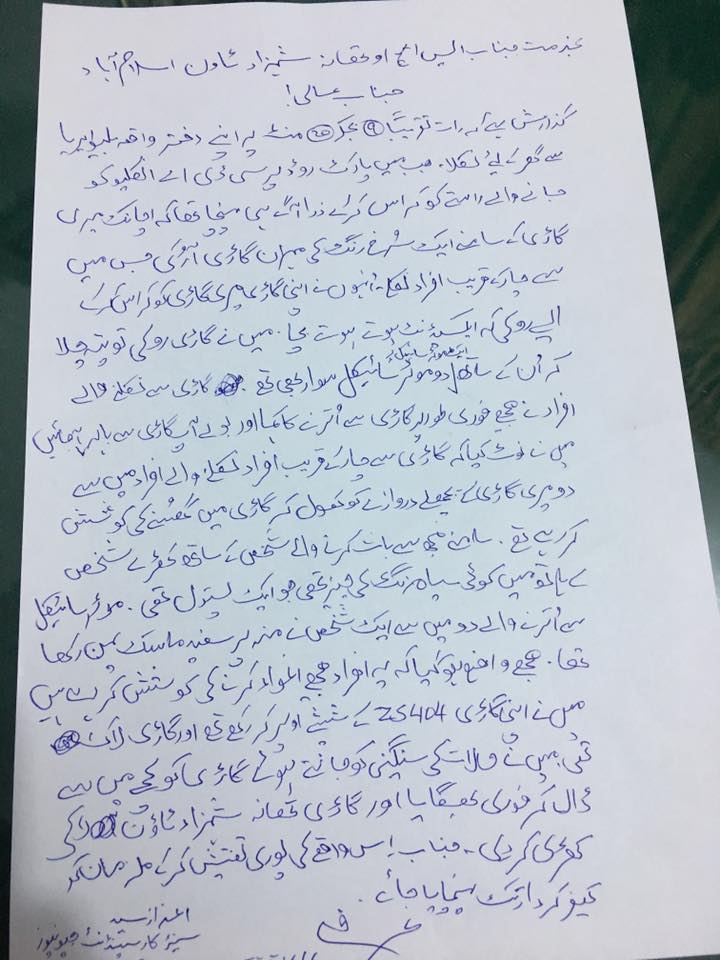 بخدمت جناب ایس ایچ او تھانہ شہزاد ٹاون اسلام آباد
جناب عالی!
گذارش ہے کہ رات تقریباً 9 بجکر منٹ پہ اپنے دفتر واقعہ بلیو ایریا
سے گھر کے لیئے نکلا۔ جب میں پارک روڈ پر سی ڈی اے انکلیو کو
جانے والے راستے کو کراس کرکے ذرا آگے ہی پہنچا تھا کہ اچانک میری
گاڑی کے سامنے ایک سُرخ رنگ کی مہران گاڑی آ رُکی جس میں
سے چار کے قریب افراد نکلے انہوں نے اپنی گاڑی میری گاڑی کو کراس کرکے
ایسے روکی کہ ایکسیڈنٹ ہوتے ہوتے بچا۔ میں نے گاڑی روکی تو پتہ چلا
کہ اُن کے ساتھ ایک موٹر سائیکل پر دو موٹر سائیکل سوار بھی تھے۔ گاڑی سے نکلنے والے
افراد نے مجھے فوری طور پر گاڑی سے اُترنے کا کہا اور بولے آپ گاڑی سے باہر آ جائیں
میں نے نوٹ کیا کہ گاڑی سے چار کے قریب افراد نکلنے والے افراد میں سے
دو میری گاڑی کے پچھلے دروازے کو کھول کر گاڑی میں گھسنے کی کوشش
کر رہے تھے۔ سامنے مجھ سے بات کرنے والے شخص کے ساتھ کھڑے شخص
کے ہاتھ میں کوئی سیاہ رنگ کی چیز تھی جو ایک پستول تھی۔ موٹر سائیکل
سے اُترنے والے دو میں سے ایک شخص نے منہ پر سفید ماسک پہن رکھا
تھا۔ مجھے واضع ہو گیا کہ یہ افراد مجھے اغواء کرنے کی کوشش کر رہے ہیں
میں نے اپنی گاڑی ZS404 کے شیشے اوپر کر رکھے تھے اور گاڑی لاک
تھی میں نے حالات کی سنگینی کو جانتے ہوئے گاڑی کو کچے میں سے
ڈال کر فوری بھگایا اور گاڑی تھانہ شہزاد ٹاؤن لا کر
کھڑی کر دی۔ جناب اِس واقعے کی پوری تفتیش کرکے ملزمان کو
کیفر کردار تک پہنچایا جائے۔
اعزاز سید
سینئر کارسپنڈنٹ جیو نیوز